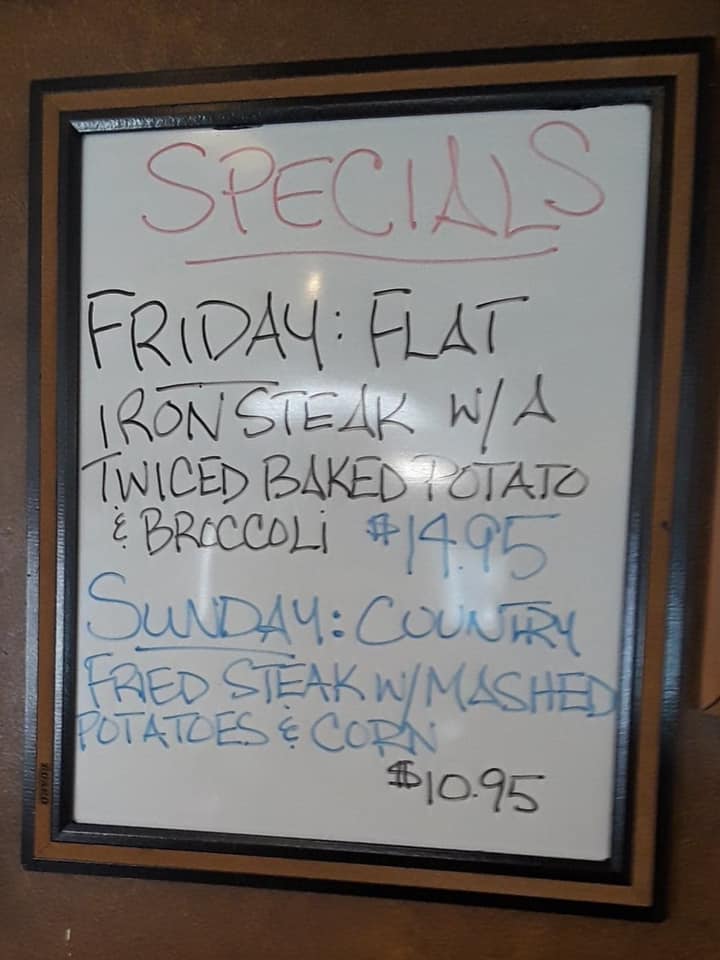 SPECIALS
FRIDAY: FLAT
IRON STEAK W/ A
TWICED BAKED POTATO
& BROCCOLI $14.95
SUNDAY: COUNTRY
FRIED STEAK W/ MASHED
POTATOES & CORN
$10.95